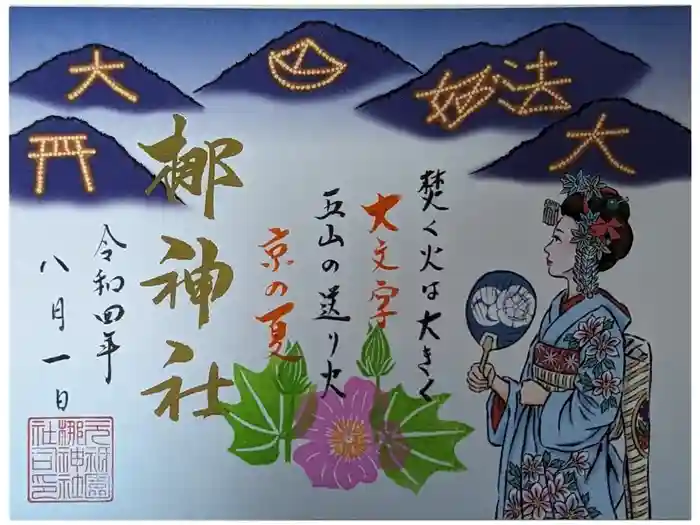 妙法
大
大
焚く火は大きく
大文字
五山の送り火
京の夏
梛神社
令和四年
八月一日
元祇園
梛神社
社印